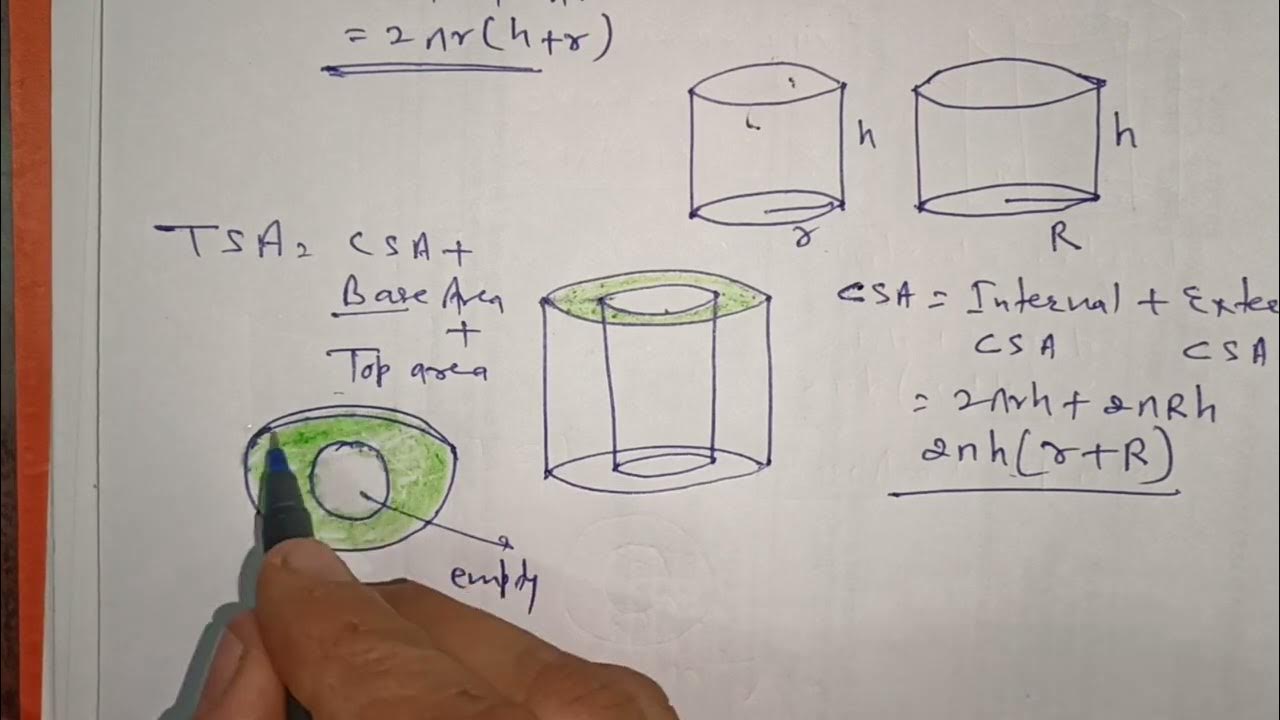 = 2πr(h+r)
h
h
r
R
TSA = CSA +
Base Area
+
Top area
CSA = Internal + Exte
CSA CSA
= 2πrh + 2πRh
2πh(r+R)
empty